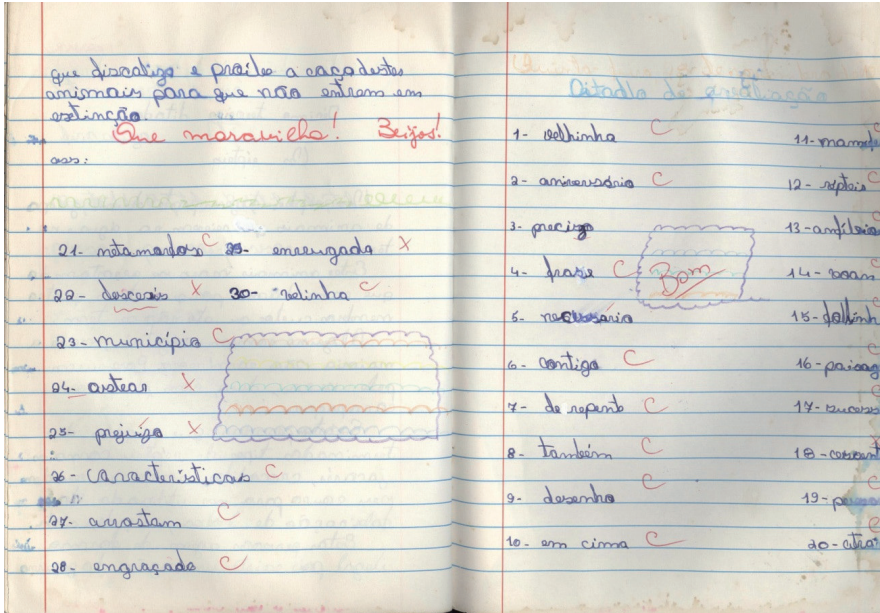 que fiscaliza e proibe a caça destes
animais para que não entrem em
extinção
Que maravilha! Beijos!
ass:
21- metamorfose C 29- enxergada X
22- descesis X 30- velinha C
23- município C
24- astear X
25- prejuízo X
26- características C
27- arrastam C
28- engraçado C
Ditado de avaliação
1- velhinha C
2- aniversário C
3- precizo
4- frase C
5- necessário
6- contigo C
7- de repente C
8- também C
9- desenho C
10- em cima C
Bom
11- mamíf
12- répteis C
13- anfíbio
14- voam C
15- folhinh
16- paisag
17- sucess
18- X
19-
20-